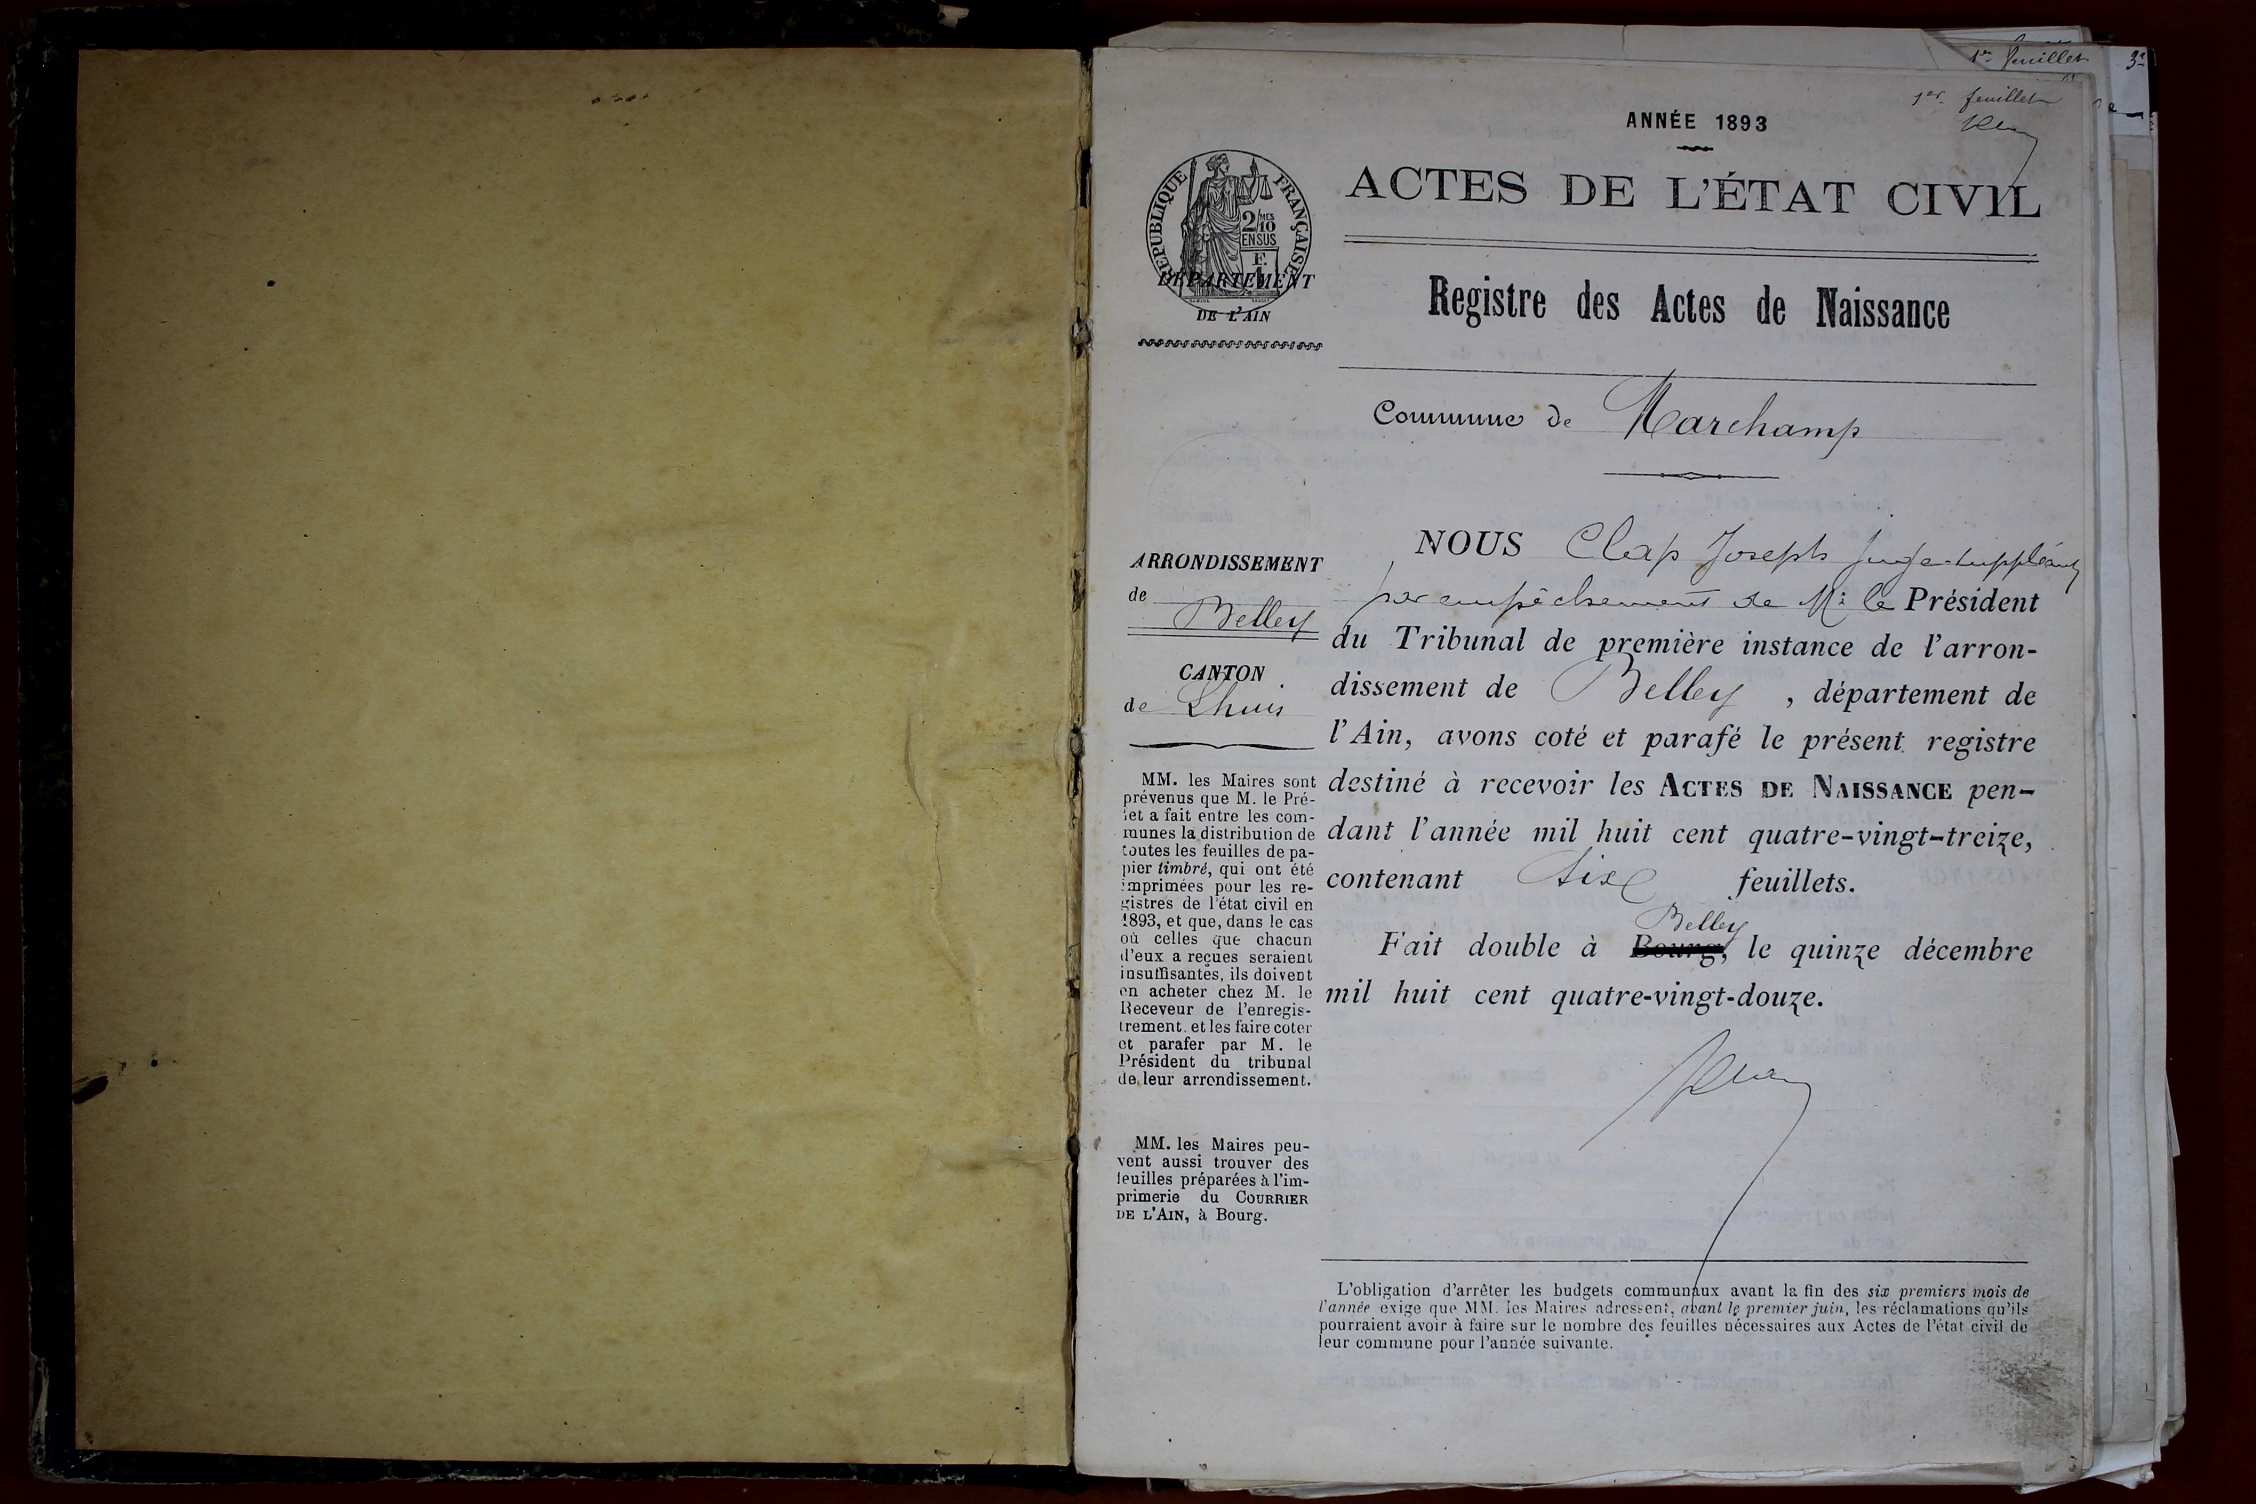 1er feuillet
3e
1er feuillet
ANNÉE 1893
ACTES DE L'ÉTAT CIVIL
RÉPUBLIQUE FRANÇAISE
2/10 MES
EN SUS
1 F.
DÉPARTEMENT
DE L'AIN
Registre des Actes de Naissance
Commune de Marchamp
ARRONDISSEMENT
de Belley
CANTON
de Lhuis
MM. les Maires sont
prévenus que M. le Pré-
fet a fait entre les com-
munes la distribution de
toutes les feuilles de pa-
pier timbré, qui ont été
imprimées pour les re-
gistres de l'état civil en
1893, et que, dans le cas
où celles que chacun
d'eux a reçues seraient
insuffisantes, ils doivent
en acheter chez M. le
Receveur de l'enregis-
trement, et les faire coter
et parafer par M. le
Président du tribunal
de leur arrondissement.
MM. les Maires peu-
vent aussi trouver des
feuilles préparées à l'im-
primerie du COURRIER
DE L'AIN, à Bourg.
NOUS Clap Joseph Juge-suppléant
par empêchement de Mr le Président
du Tribunal de première instance de l'arron-
dissement de Belley, département de
l'Ain, avons coté et parafé le présent registre
destiné à recevoir les ACTES DE NAISSANCE pen-
dant l'année mil huit cent quatre-vingt-treize,
contenant six feuillets.
Belley
Fait double à Bourg, le quinze décembre
mil huit cent quatre-vingt-douze.
L'obligation d'arrêter les budgets communaux avant la fin des six premiers mois de
l'année exige que MM. les Maires adressent, avant le premier juin, les réclamations qu'ils
pourraient avoir à faire sur le nombre des feuilles nécessaires aux Actes de l'état civil de
leur commune pour l'année suivante.